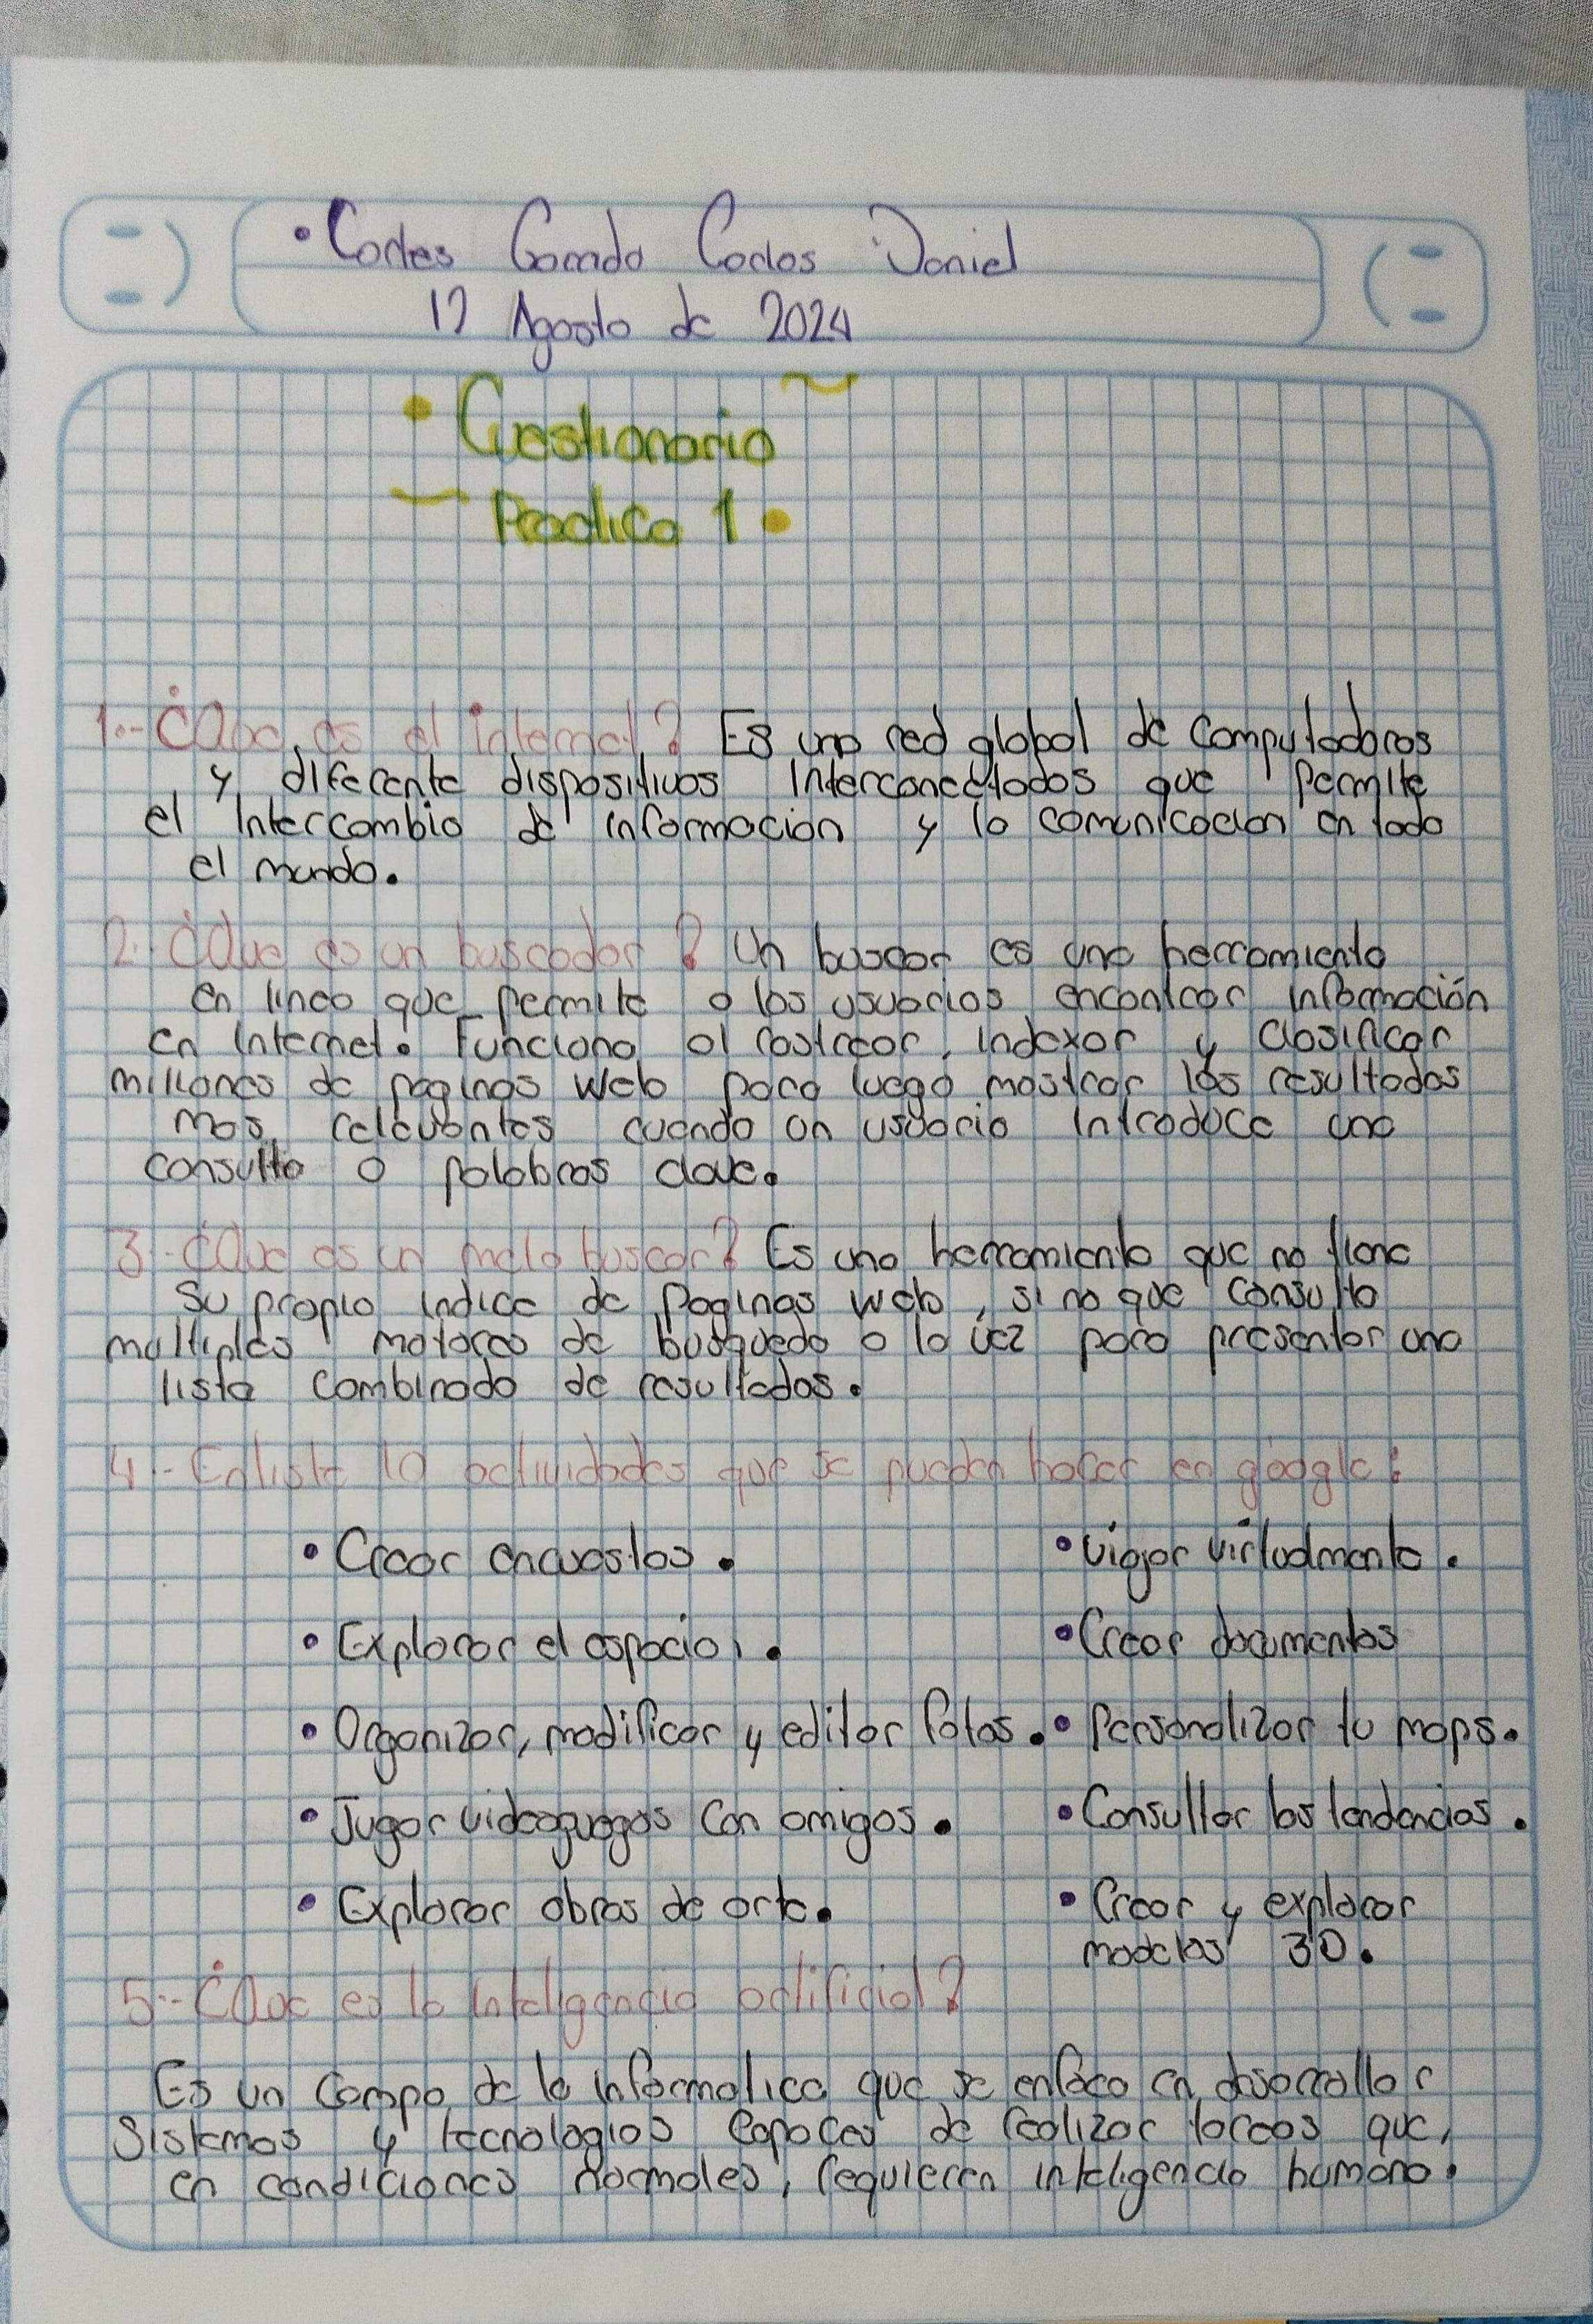 • Cortes Corrado Carlos Daniel
12 Agosto de 2024
• Cuestionario
Practica 1 •
1.- ¿Que es el internet? Es una red global de computadoras
y diferente dispositivos interconectados que permite
el intercambio de informacion y la comunicacion en todo
el mundo.
2.- ¿Que es un buscador? Un buscar es una herramienta
en linea que permite a los usuarios encontrar información
en internet. Funciona al rastrear, indexar y clasificar
millones de paginas web para luego mostrar los resultados
mas relevantes cuando un usuario introduce una
consulta o palabras clave.
3.- ¿Que es un meta buscar? Es una herramienta que no tiene
su propio indice de paginas web, si no que consulta
multiples motores de busqueda a la vez para presentar una
lista combinada de resultados.
4.- Enliste 10 actividades que se pueden hacer en google:
• Crear encuestas.
• Viajar virtualmente.
• Explorar el espacio.
• Crear documentos
• Organizar, modificar y editar fotos.
• Personalizar tu maps.
• Jugar videojuegos con amigos.
• Consultar las tendencias.
• Explorar obras de arte.
• Crear y explorar
modelos 3D.
5.- ¿Que es la inteligencia artificial?
Es un campo de la informatica que se enfoca en desarrollar
sistemas y tecnologias capaces de realizar tareas que,
en condiciones normales, requieren inteligencia humana.